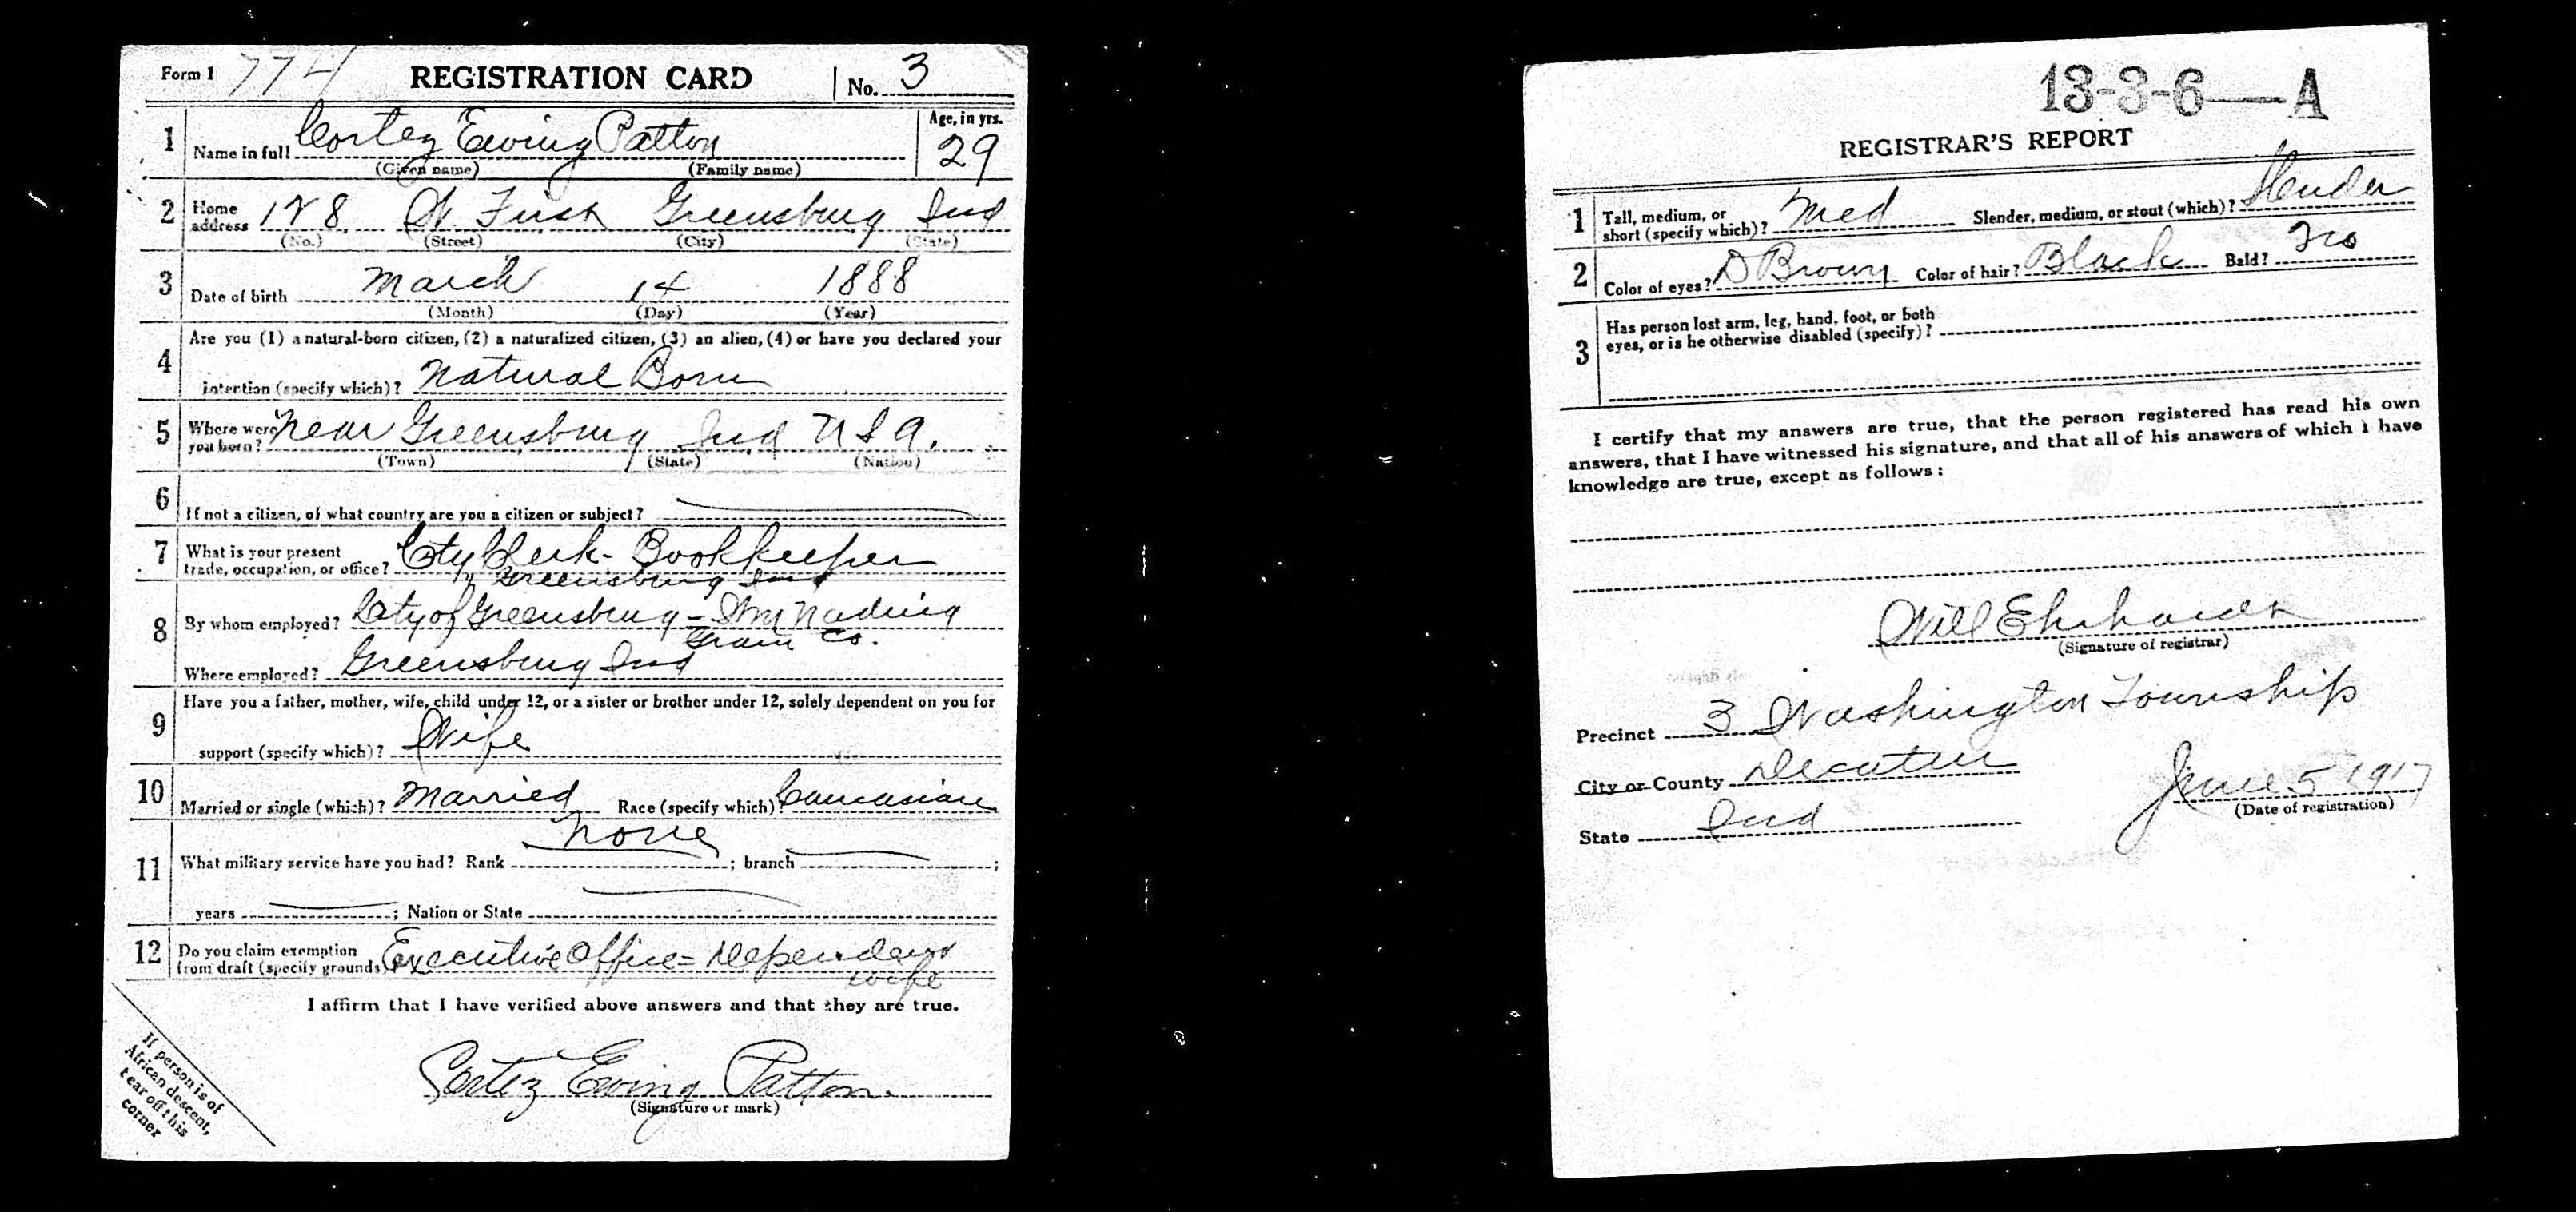 Form 1 774 REGISTRATION CARD No. 3
1 Name in full Cortez Ewing Patton Age, in yrs. 29
(Given name) (Family name)
2 Home address 128 W. First Greensburg Ind
(No.) (Street) (City) (State)
3 Date of birth March 14 1888
(Month) (Day) (Year)
4 Are you (1) a natural-born citizen, (2) a naturalized citizen, (3) an alien, (4) or have you declared your
intention (specify which)? Natural Born
5 Where were you born? Near Greensburg Ind U S A.
(Town) (State) (Nation)
6 If not a citizen, of what country are you a citizen or subject?
7 What is your present trade, occupation, or office? City Clerk - Bookkeeper
Greensburg Ind
8 By whom employed? City of Greensburg - Wm Nading
Grain Co.
Where employed? Greensburg Ind
9 Have you a father, mother, wife, child under 12, or a sister or brother under 12, solely dependent on you for
support (specify which)? Wife
10 Married or single (which)? Married Race (specify which)? Caucasian
11 What military service have you had? Rank None ; branch ;
years ; Nation or State
12 Do you claim exemption from draft (specify grounds)? Executive Office = Dependent
wife
I affirm that I have verified above answers and that they are true.
Cortez Ewing Patton.
(Signature or mark)
If person is of
African descent,
tear off this
corner
13-3-6 — A
REGISTRAR'S REPORT
1 Tall, medium, or short (specify which)? Med Slender, medium, or stout (which)? Slender
2 Color of eyes? D Brown Color of hair? Black Bald? No
3 Has person lost arm, leg, hand, foot, or both
eyes, or is he otherwise disabled (specify)?
I certify that my answers are true, that the person registered has read his own
answers, that I have witnessed his signature, and that all of his answers of which I have
knowledge are true, except as follows:
Will Ehrhardt
(Signature of registrar)
Precinct 3 Washington Township
City or County Decatur
June 5 1917
(Date of registration)
State Ind